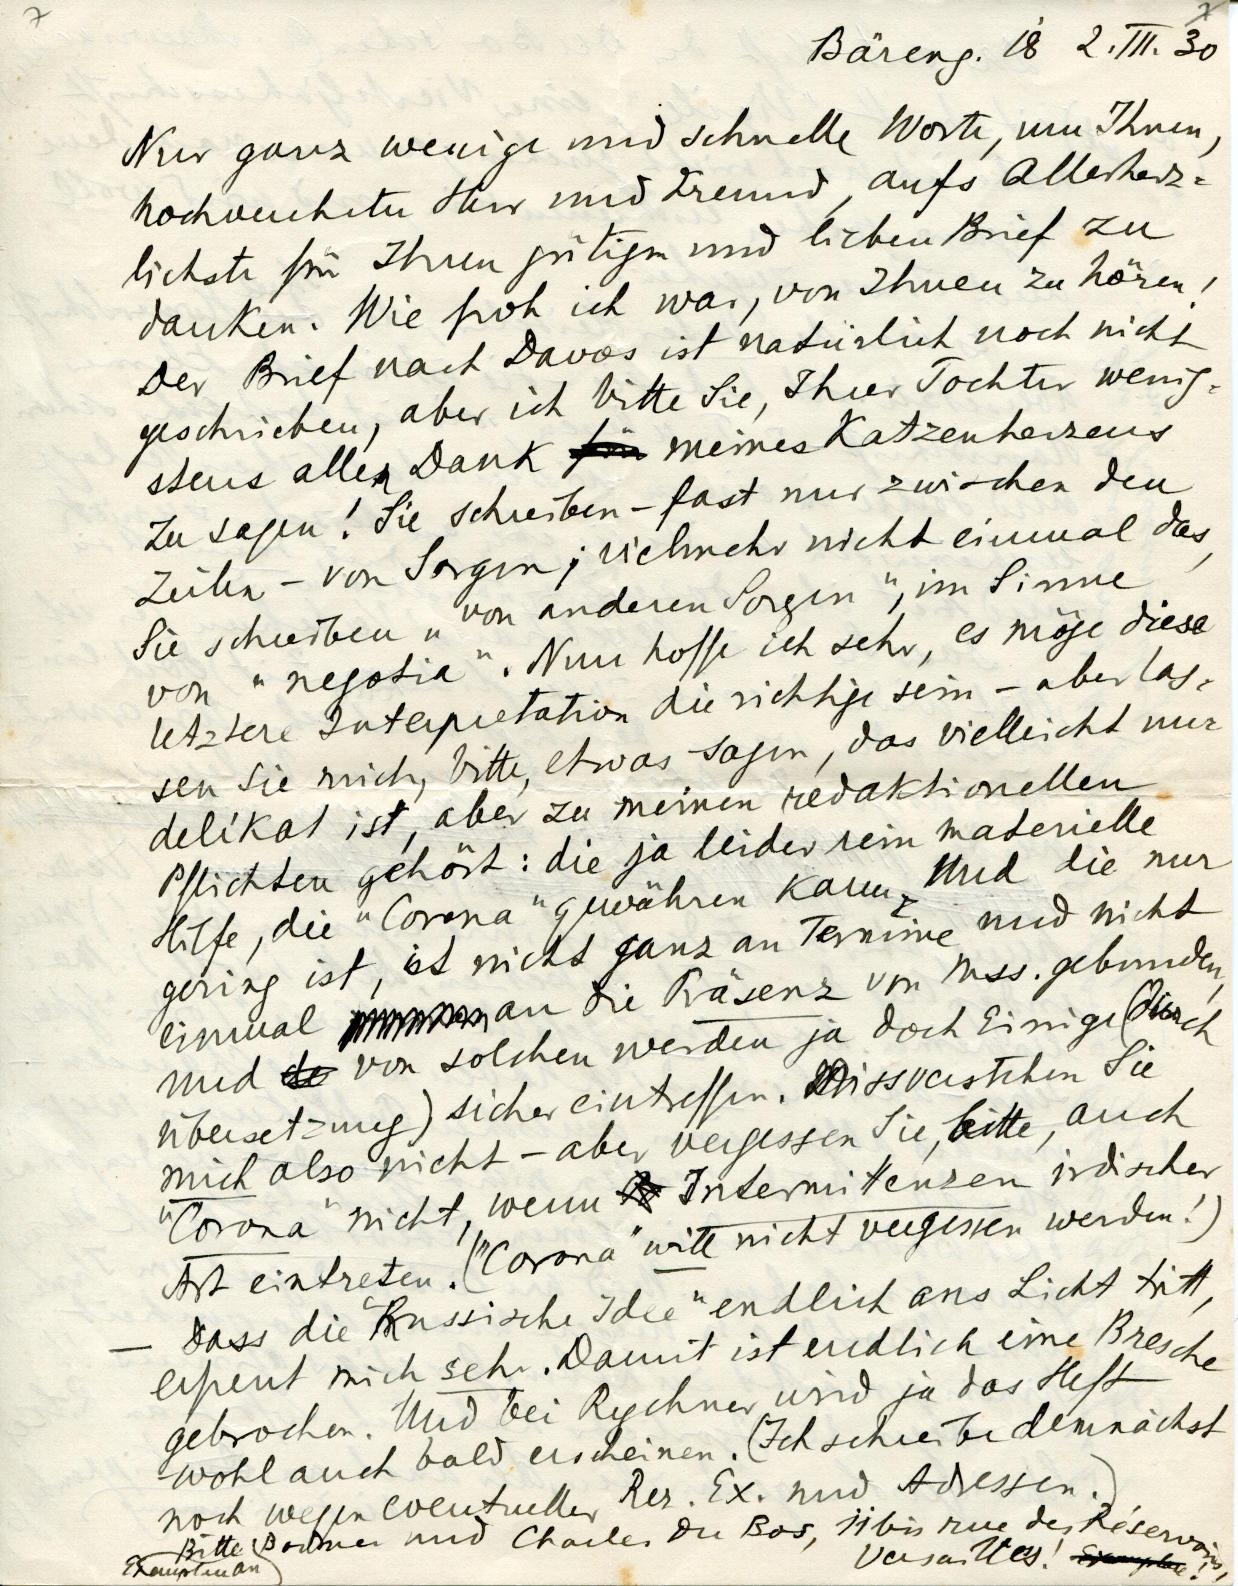 7
7
Bäreng. 18 2. III. 30
Nur ganz wenige und schnelle Worte, um Ihnen,
hochverehrter Herr und Freund, aufs Allerherz-
lichste für Ihren gütigen und lieben Brief zu
danken. Wie froh ich war, von Ihnen zu hören!
Der Brief nach Davos ist natürlich noch nicht
geschrieben, aber ich bitte Sie, Ihrer Tochter wenig-
stens allen Dank für meines Katzenherzens
zu sagen! Sie schreiben – fast nur zwischen den
Zeilen – von Sorgen; vielmehr nicht einmal das,
Sie schreiben "von anderen Sorgen", im Sinne
von "negotia". Nun hoffe ich sehr, es möge diese
letztere Interpretation die richtige sein – aber las-
sen Sie mich, bitte, etwas sagen, das vielleicht nur
delikat ist, aber zu meinen redaktionellen
Pflichten gehört: die ja leider rein materielle
Hilfe, die "Corona" gewähren kann, und die nur
gering ist, ist nicht ganz an Termine und nicht
einmal an die Präsenz von Mss. gebunden,
und von solchen werden ja doch Einige (durch
Übersetzung) sicher eintreffen. Missverstehen Sie
mich also nicht – aber vergessen Sie, bitte, auch
"Corona" nicht, wenn Intermittenzen irdischer
Art eintreten. ("Corona" will nicht vergessen werden!)
— Dass die "Russische Idee" endlich ans Licht tritt,
erfreut mich sehr. Damit ist endlich eine Bresche
gebrochen. Und bei Rychner wird ja das Heft
wohl auch bald erscheinen. (Ich schreibe demnächst
noch wegen eventueller Rez. Ex. und Adressen.)
Bitte Bodmer und Charles Du Bos, 11bis rue des Réservoirs,
Versailles! Exemplare!